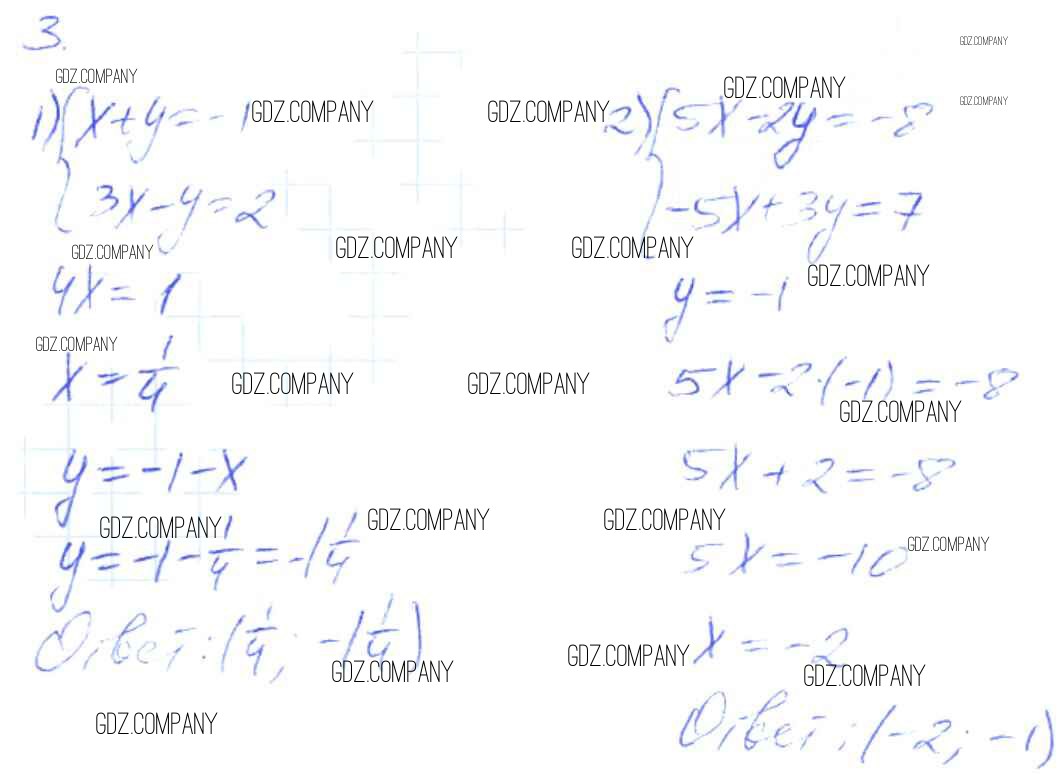 3.
GDZ.COMPANY
GDZ.COMPANY
GDZ.COMPANY
GDZ.COMPANY
1) { x + y = -1
GDZ.COMPANY
GDZ.COMPANY
3x - y = 2
GDZ.COMPANY
GDZ.COMPANY
4x = 1
GDZ.COMPANY
x = 1/4
GDZ.COMPANY
GDZ.COMPANY
y = -1 - x
GDZ.COMPANY
GDZ.COMPANY
y = -1 - 1/4 = -1 1/4
Ответ: (1/4; -1 1/4)
GDZ.COMPANY
GDZ.COMPANY
GDZ.COMPANY
2) { 5x - 2y = -8
-5x + 3y = 7
GDZ.COMPANY
GDZ.COMPANY
y = -1
5x - 2·(-1) = -8
GDZ.COMPANY
5x + 2 = -8
GDZ.COMPANY
GDZ.COMPANY
5x = -10
GDZ.COMPANY
x = -2
GDZ.COMPANY
Ответ: (-2; -1)